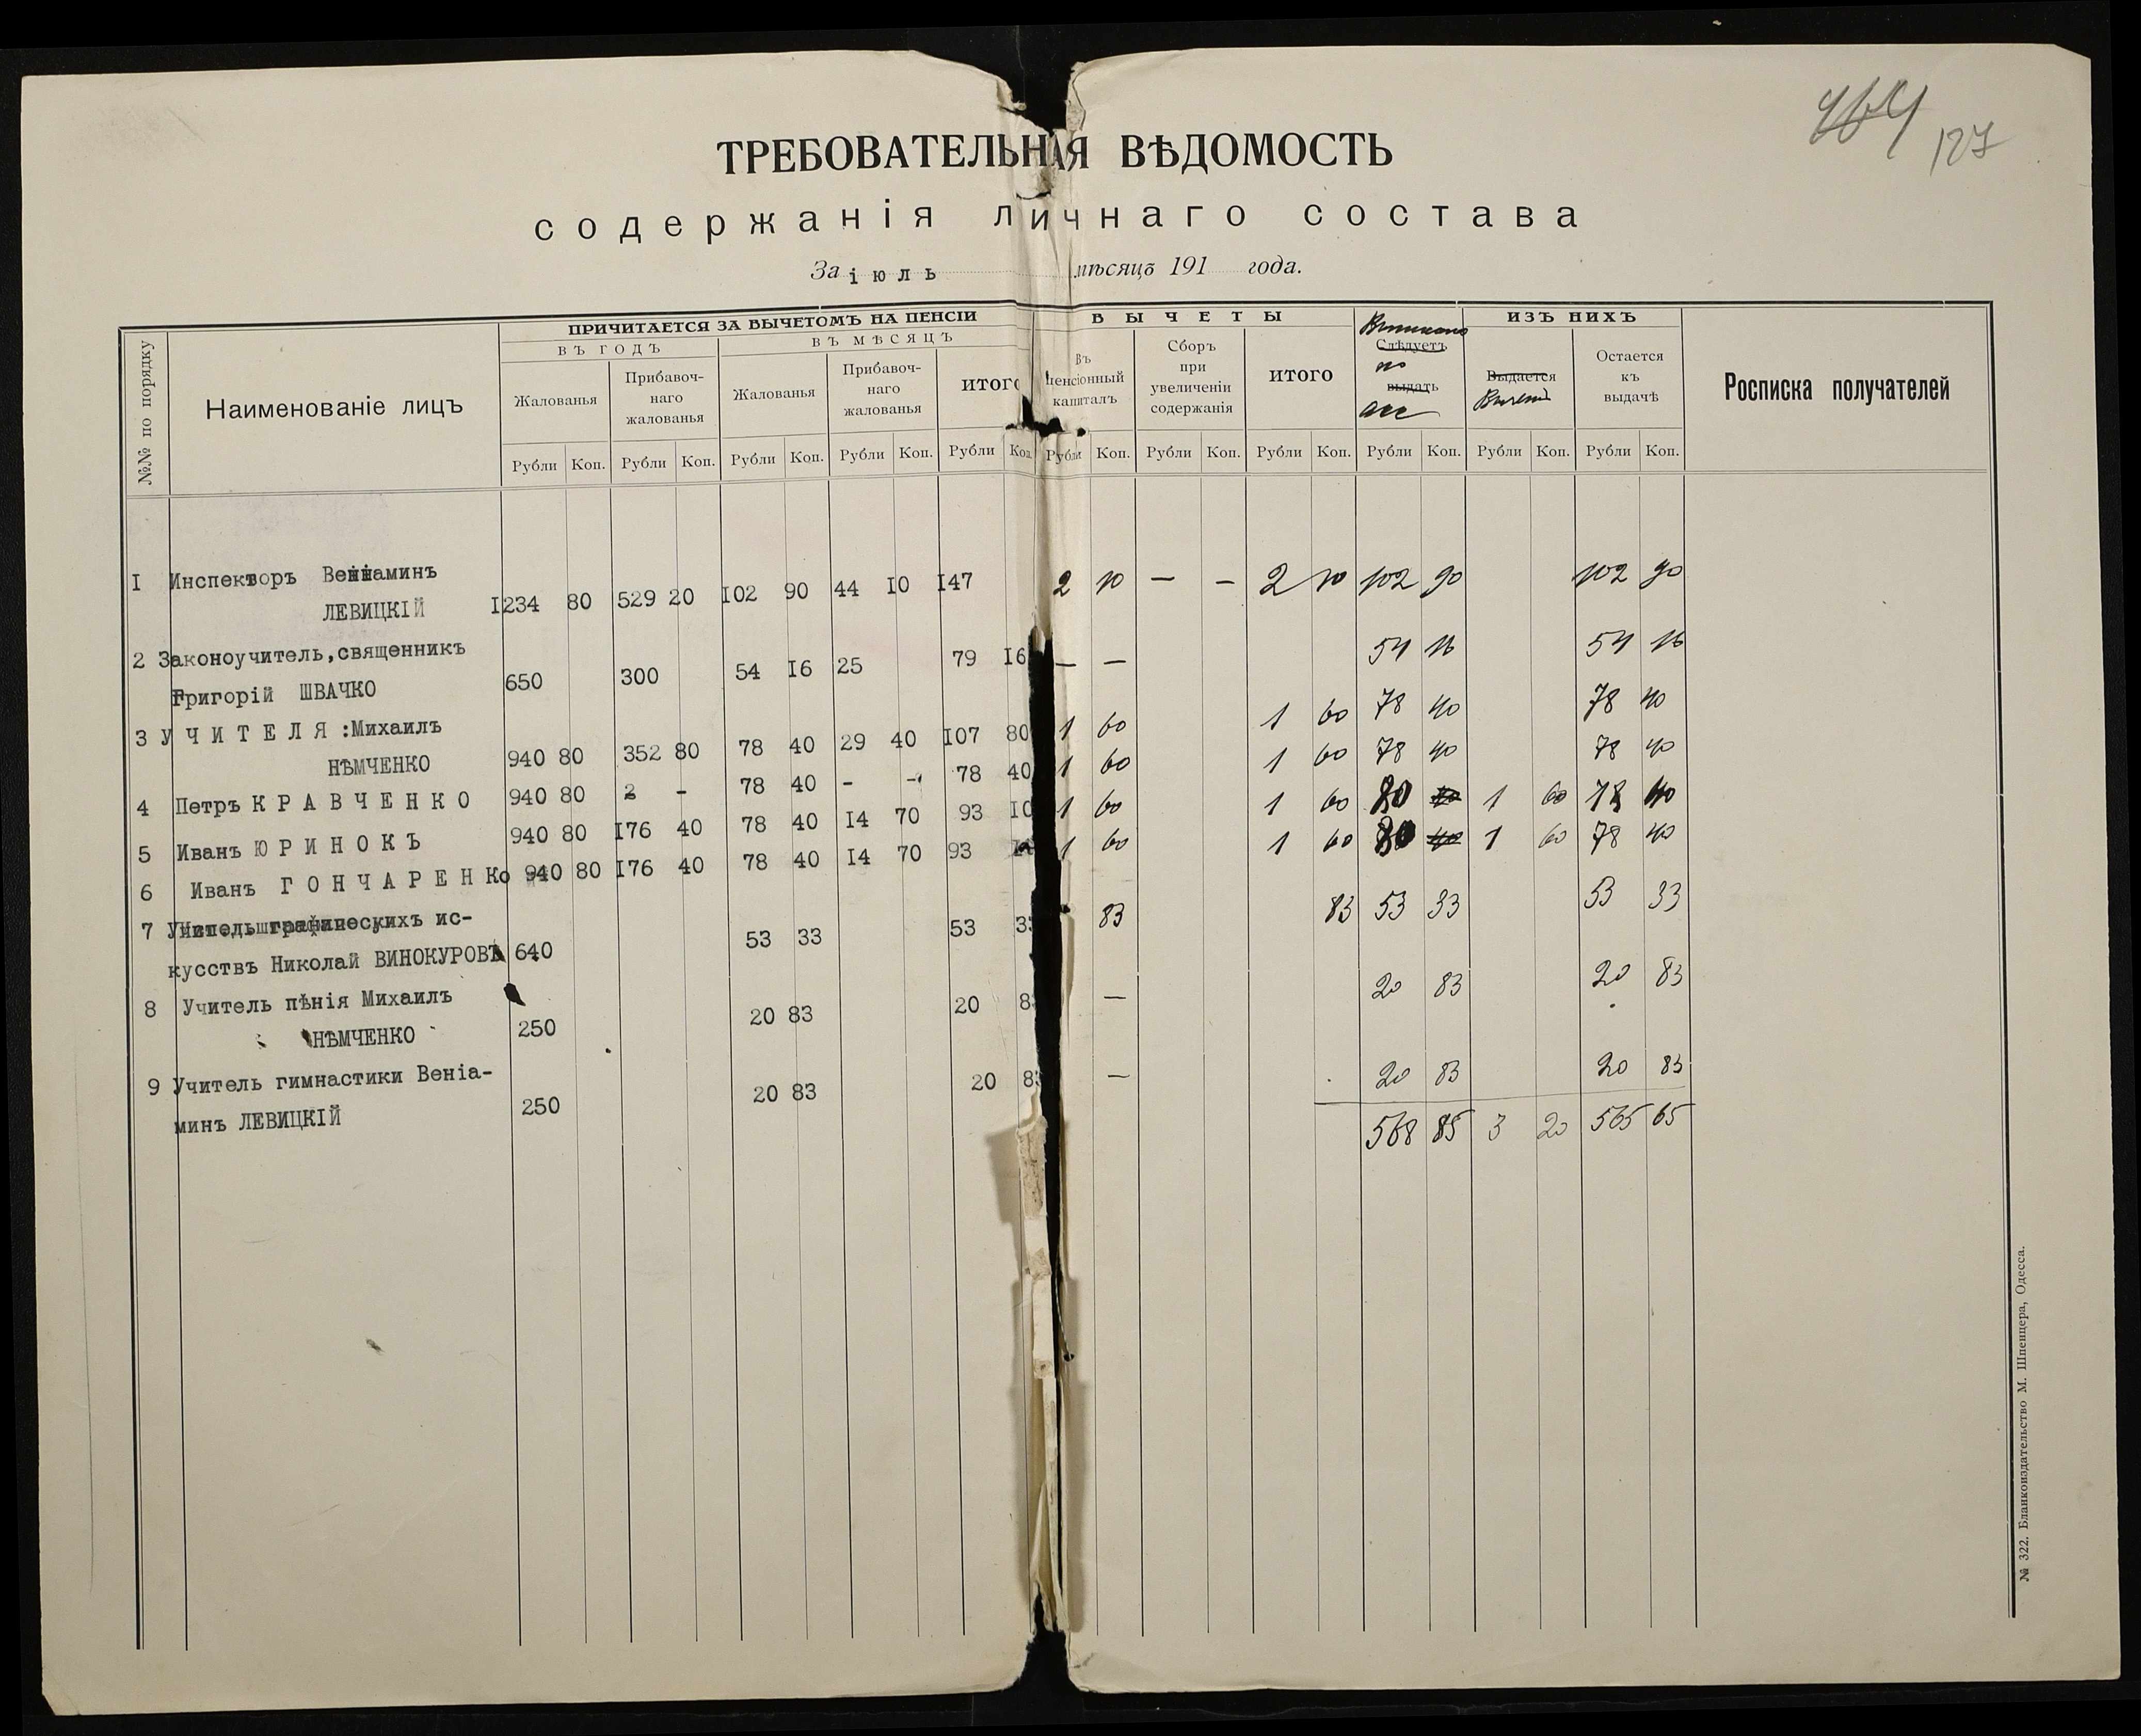 464 127
ТРЕБОВАТЕЛЬНАЯ ВѢДОМОСТЬ
содержанія личнаго состава
За іюль мѣсяцъ 191 года.
№№ по порядку
Наименованіе лицъ
ПРИЧИТАЕТСЯ ЗА ВЫЧЕТОМЪ НА ПЕНСІИ
ВЫЧЕТЫ
ИЗЪ НИХЪ
Росписка получателей
ВЪ ГОДЪ
ВЪ МѢСЯЦЪ
Жалованья
Прибавоч-
наго
жалованья
Жалованья
Прибавоч-
наго
жалованья
ИТОГО
Въ
пенсіонный
капиталъ
Сборъ
при
увеличеніи
содержанія
ИТОГО
Слѣдуетъ
по
выдать
Выдается
Остается
къ
выдачѣ
Рубли Коп. Рубли Коп. Рубли Коп. Рубли Коп. Рубли Коп. Рубли Коп. Рубли Коп. Рубли Коп. Рубли Коп. Рубли Коп. Рубли Коп.
I Инспекторъ Веніаминъ
ЛЕВИЦКІЙ I234 80 529 20 I02 90 44 I0 I47 2 10 — — 2 10 102 90 102 90
2 Законоучитель,священникъ
Григорій ШВАЧКО 650 300 54 I6 25 79 I6 — — 54 16 54 16
3 УЧИТЕЛЯ:Михаилъ
НѢМЧЕНКО 940 80 352 80 78 40 29 40 I07 80 1 60 1 60 78 40 78 40
4 Петръ КРАВЧЕНКО 940 80 - 78 40 - - 78 40 1 60 1 60 78 40 78 40
5 Иванъ ЮРИНОКЪ 940 80 I76 40 78 40 I4 70 93 I0 1 60 1 60 80 40 1 60 78 40
6 Иванъ ГОНЧАРЕНКо 940 80 I76 40 78 40 I4 70 93 1 60 1 60 80 40 1 60 78 40
7 Учитель графическихъ ис-
кусствъ Николай ВИНОКУРОВЪ 640 53 33 53 33 83 83 53 33 53 33
8 Учитель пѣнія Михаилъ
НѢМЧЕНКО 250 20 83 20 8 — 20 83 20 83
9 Учитель гимнастики Веніа-
минъ ЛЕВИЦКІЙ 250 20 83 20 83 — 20 83 20 83
568 85 3 20 565 65
№ 322. Бланкоиздательство М. Шпенцера, Одесса.